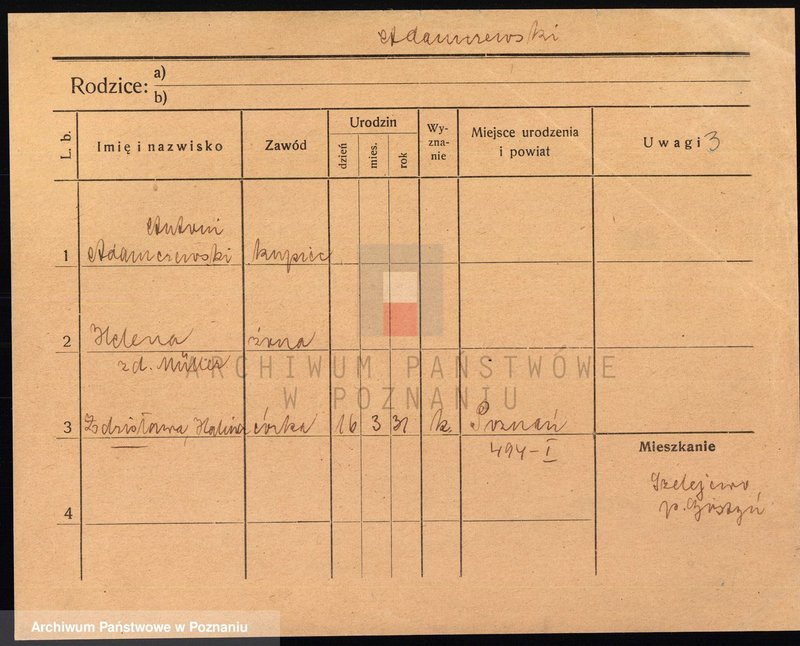 Adamczewski
Rodzice: a)
b)
L. b.
Imię i nazwisko
Zawód
Urodzin
dzień
mies.
rok
Wy-
zna-
nie
Miejsce urodzenia
i powiat
Uwagi 3
Antoni
1 Adamczewski kupiec
2 Helena żona
z d. Müller
ARCHIWUM PAŃSTWOWE
W POZNANIU
3 Zdzisława, Halina córka 16 3 31 k. Poznań
494-I
Mieszkanie
Szelejewo
p. Gostyń
4
Archiwum Państwowe w Poznaniu